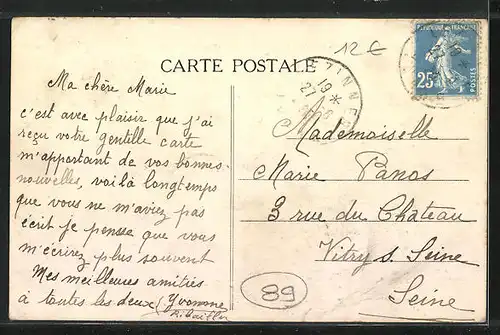 12 €
CARTE POSTALE
RÉPUBLIQUE FRANÇAISE
25
POSTES
19 *
27
Ma chère Marie
c'est avec plaisir que j'ai
reçu votre gentille carte
m'apportant de vos bonnes
nouvelles, voilà longtemps
que vous ne m'aviez pas
écrit je pense que vous
m'écrirez plus souvent
Mes meilleures amitiés
à toutes les deux (Yvonne
Mademoiselle
Marie Panos
3 rue du Chateau
Vitry s. Seine
Seine
89